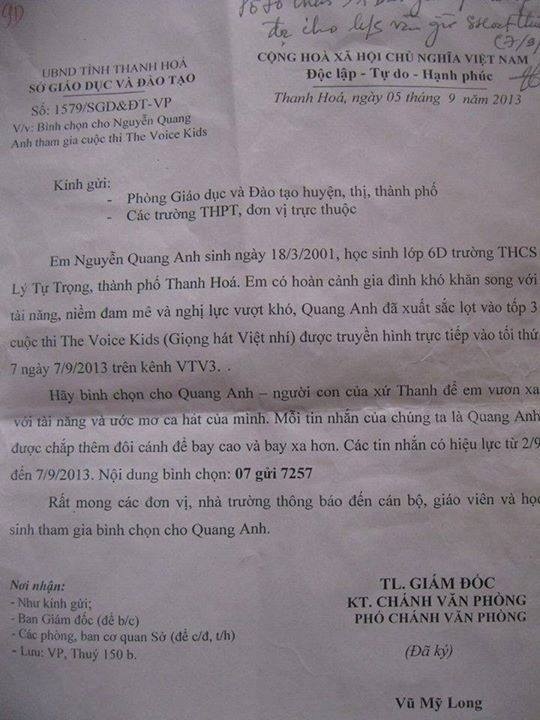 9D
đa cho lớp văn
UBND TỈNH THANH HOÁ
SỞ GIÁO DỤC VÀ ĐÀO TẠO
Số: 1579/SGD&ĐT-VP
V/v: Bình chọn cho Nguyễn Quang
Anh tham gia cuộc thi The Voice Kids
CỘNG HOÀ XÃ HỘI CHỦ NGHĨA VIỆT NAM
Độc lập - Tự do - Hạnh phúc
Thanh Hoá, ngày 05 tháng 9 năm 2013
Kính gửi:
- Phòng Giáo dục và Đào tạo huyện, thị, thành phố
- Các trường THPT, đơn vị trực thuộc
Em Nguyễn Quang Anh sinh ngày 18/3/2001, học sinh lớp 6D trường THCS
Lý Tự Trọng, thành phố Thanh Hoá. Em có hoàn cảnh gia đình khó khăn song với
tài năng, niềm đam mê và nghị lực vượt khó, Quang Anh đã xuất sắc lọt vào tốp 3
cuộc thi The Voice Kids (Giọng hát Việt nhí) được truyền hình trực tiếp vào tối thứ
7 ngày 7/9/2013 trên kênh VTV3. .
Hãy bình chọn cho Quang Anh – người con của xứ Thanh để em vươn xa
với tài năng và ước mơ ca hát của mình. Mỗi tin nhắn của chúng ta là Quang Anh
được chắp thêm đôi cánh để bay cao và bay xa hơn. Các tin nhắn có hiệu lực từ 2/9
đến 7/9/2013. Nội dung bình chọn: 07 gửi 7257
Rất mong các đơn vị, nhà trường thông báo đến cán bộ, giáo viên và học
sinh tham gia bình chọn cho Quang Anh.
Nơi nhận:
- Như kính gửi;
- Ban Giám đốc (để b/c)
- Các phòng, ban cơ quan Sở (để c/đ, t/h)
- Lưu: VP, Thuý 150 b.
TL. GIÁM ĐỐC
KT. CHÁNH VĂN PHÒNG
PHÓ CHÁNH VĂN PHÒNG
(Đã ký)
Vũ Mỹ Long